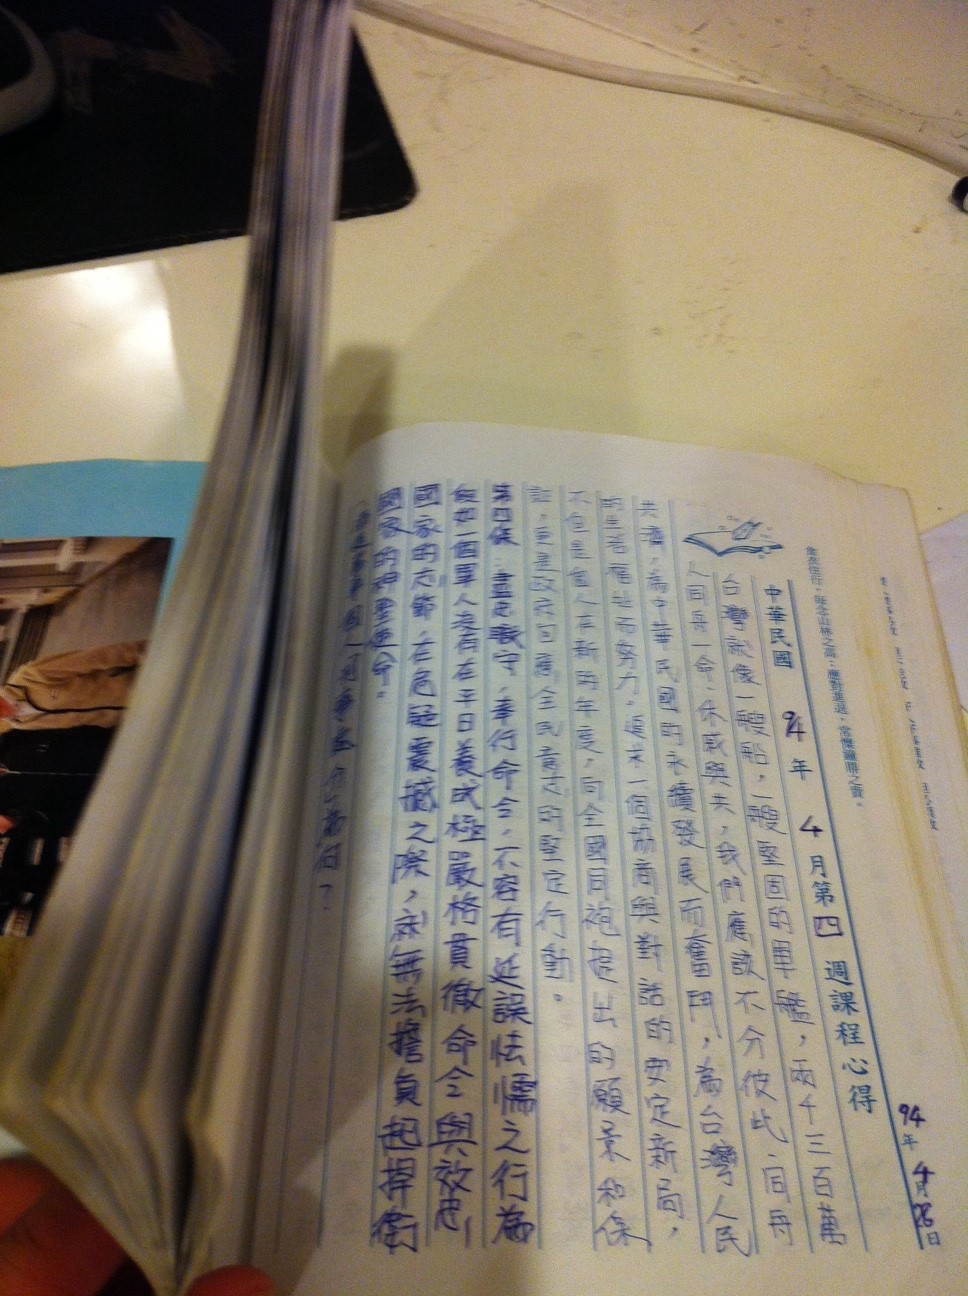 94年 4月26日
象徵恆行，每念山林之高；應對進退，常懷鐘鼎之貴。
中華民國 94 年 4 月第 四 週課程心得
台灣就像一艘船，一艘堅固的軍艦，兩千三百萬
人同舟一命、休戚與共，我們應該不分彼此、同舟
共濟，為中華民國的永續發展而奮鬥，為台灣人民
的生活福址而努力。追求一個協商與對話的安定新局，
不但是個人在新的年度，向全國同袍提出的願景和保
證，更是政府回應全民意志的堅定行動。
第四條：盡忠職守，奉行命令，不容有延誤怯懦之行為
假如一個軍人沒有在平日養成極嚴格貫徹命令與效忠
國家的志節，在危疑震撼之際，就無法擔負起捍衛
國家的神聖使命。